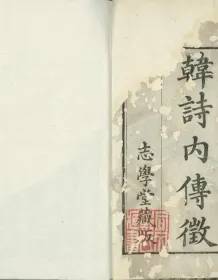 韓詩内傳徵
志學堂藏版